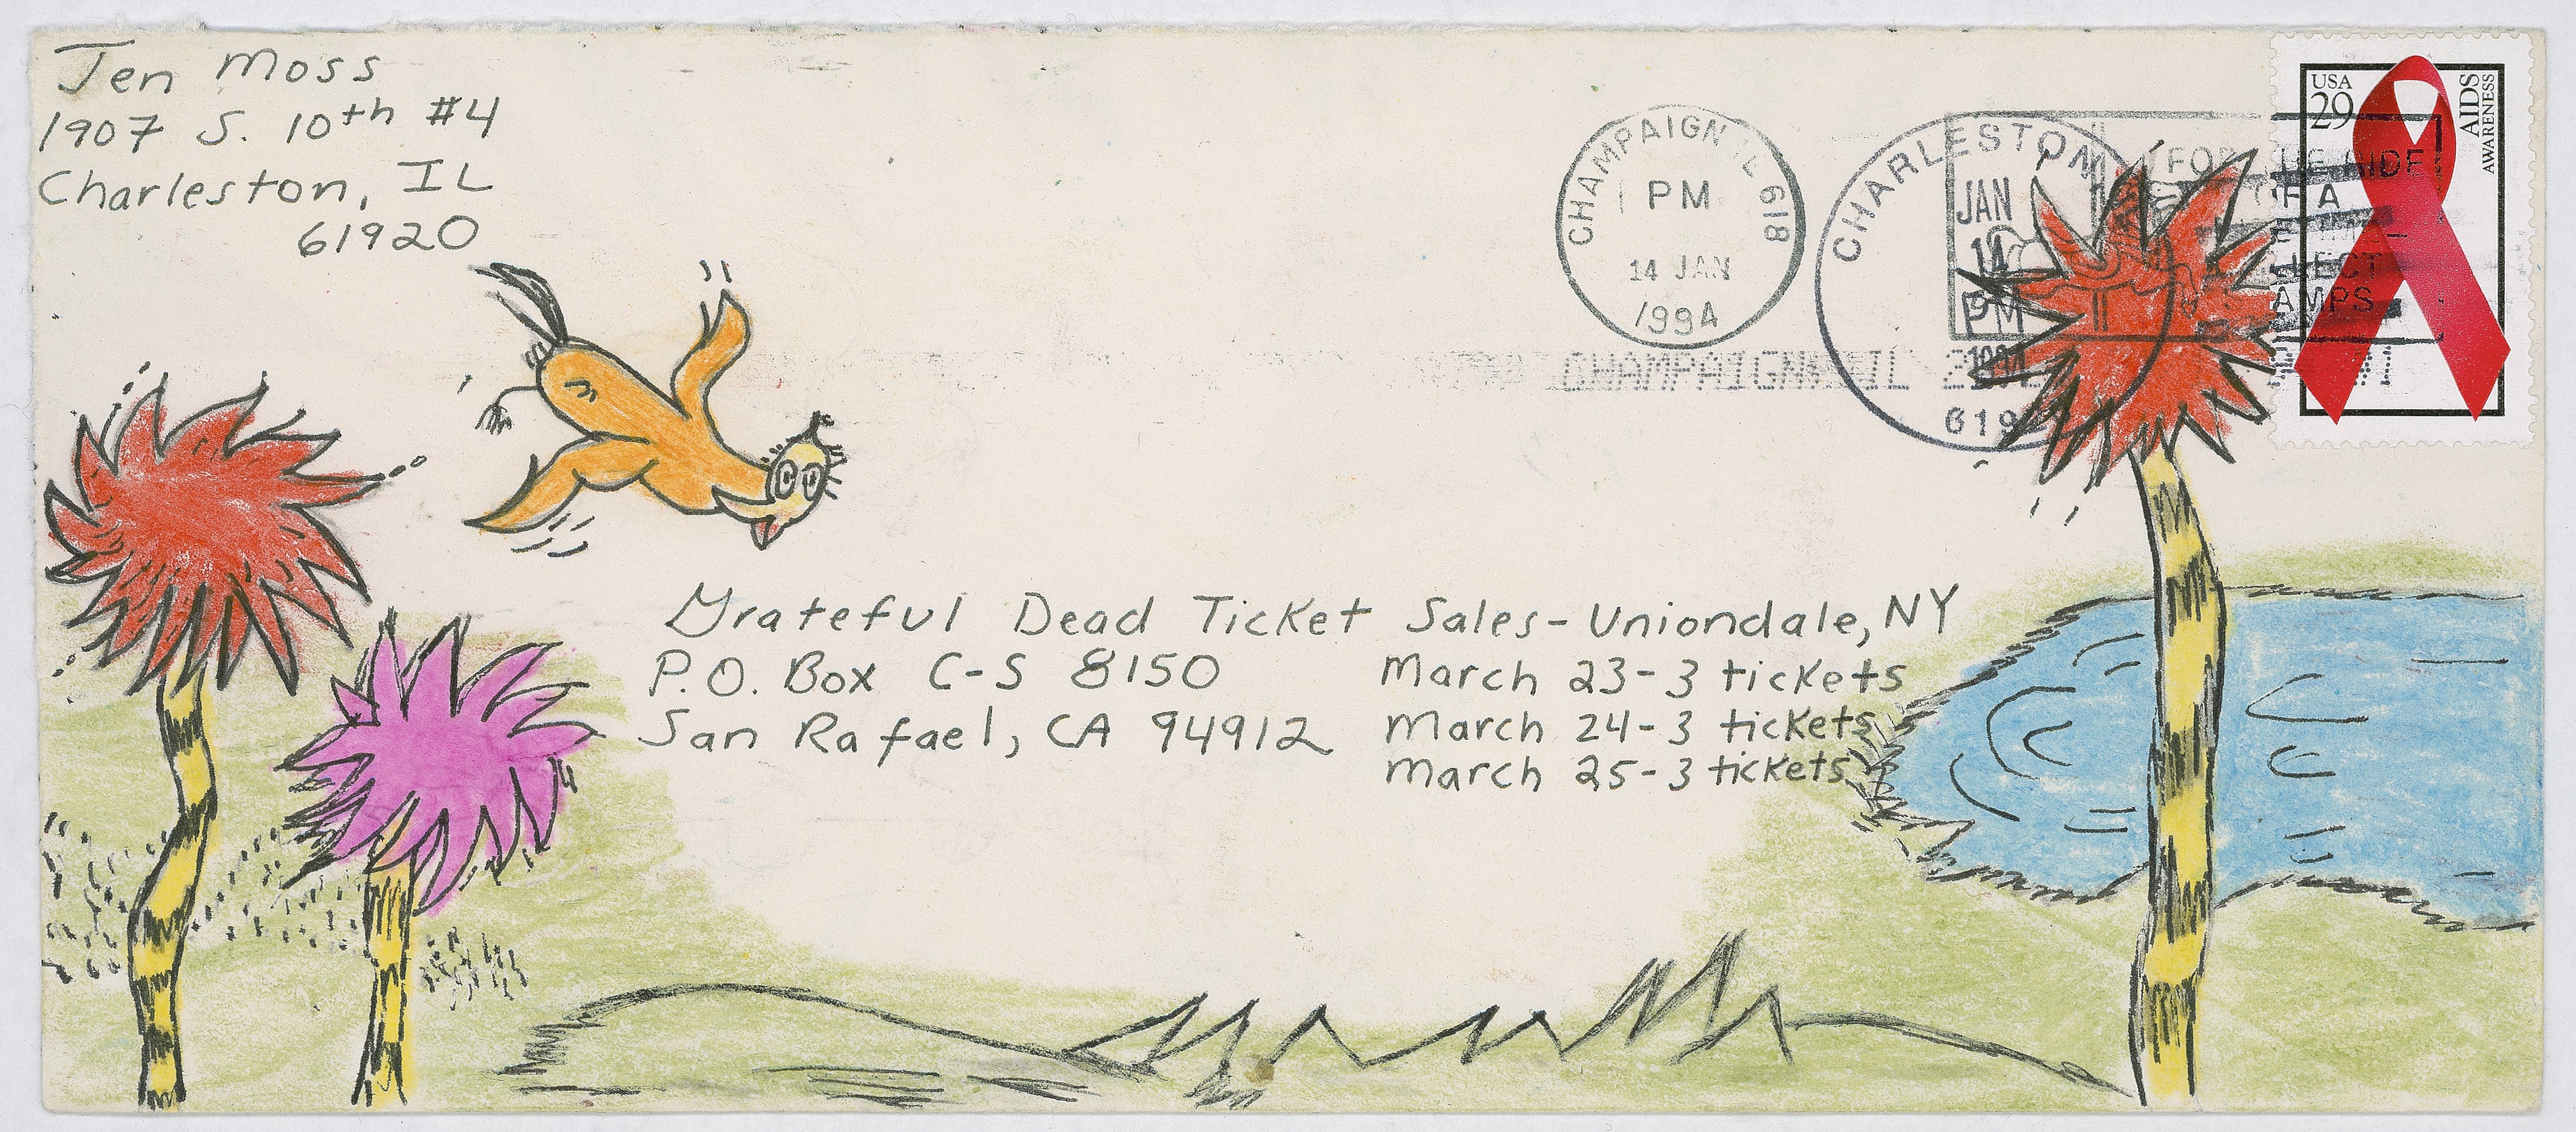 Jen Moss
1907 S. 10th #4
Charleston, IL
61920
CHAMPAIGN IL 618
PM
14 JAN
1994
CHARLESTON
JAN
14
PM
1994
619
CHAMPAIGN IL
USA
29
AIDS
AWARENESS
FOR
A
AMPS
Grateful Dead Ticket Sales-Uniondale, NY
P.O. Box C-S 8150
March 23-3 tickets
San Rafael, CA 94912
March 24-3 tickets
March 25-3 tickets